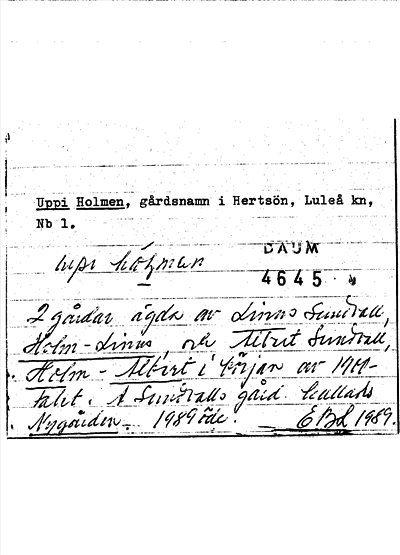 Uppi Holmen, gårdsnamn i Hertsön, Luleå kn,
Nb l.
upi hólmen
DAUM
4645
2 gårdar ägda av Linus Sundvall,
Holm-Linus, och Albert Sundvall,
Holm-Albert i början av 1900-
talet. A Sundvalls gård kallads
Nygården. 1989 öde. EBL 1989.